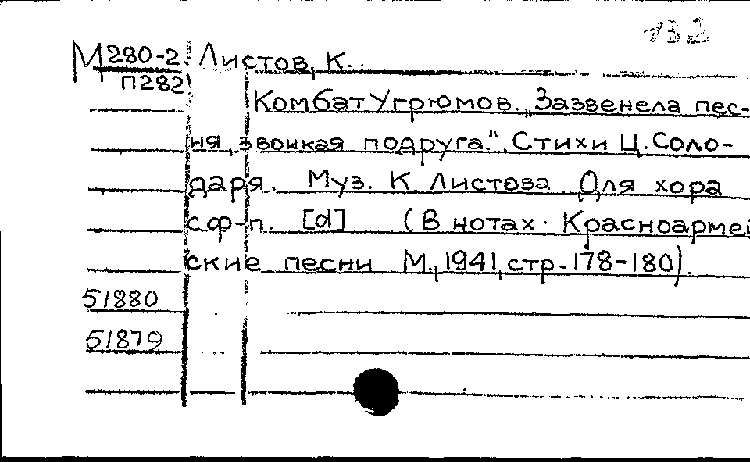 132
М 280-2 Листов, К.
П282
Комбат Угрюмов. „Зазвенела пес-
ня, звонкая подруга." Стихи Ц. Соло-
даря. Муз. К Листова. Для хора
с ф-п. [d] (В нотах: Красноармей
ские песни М., 1941, стр. 178-180).
51880
51879